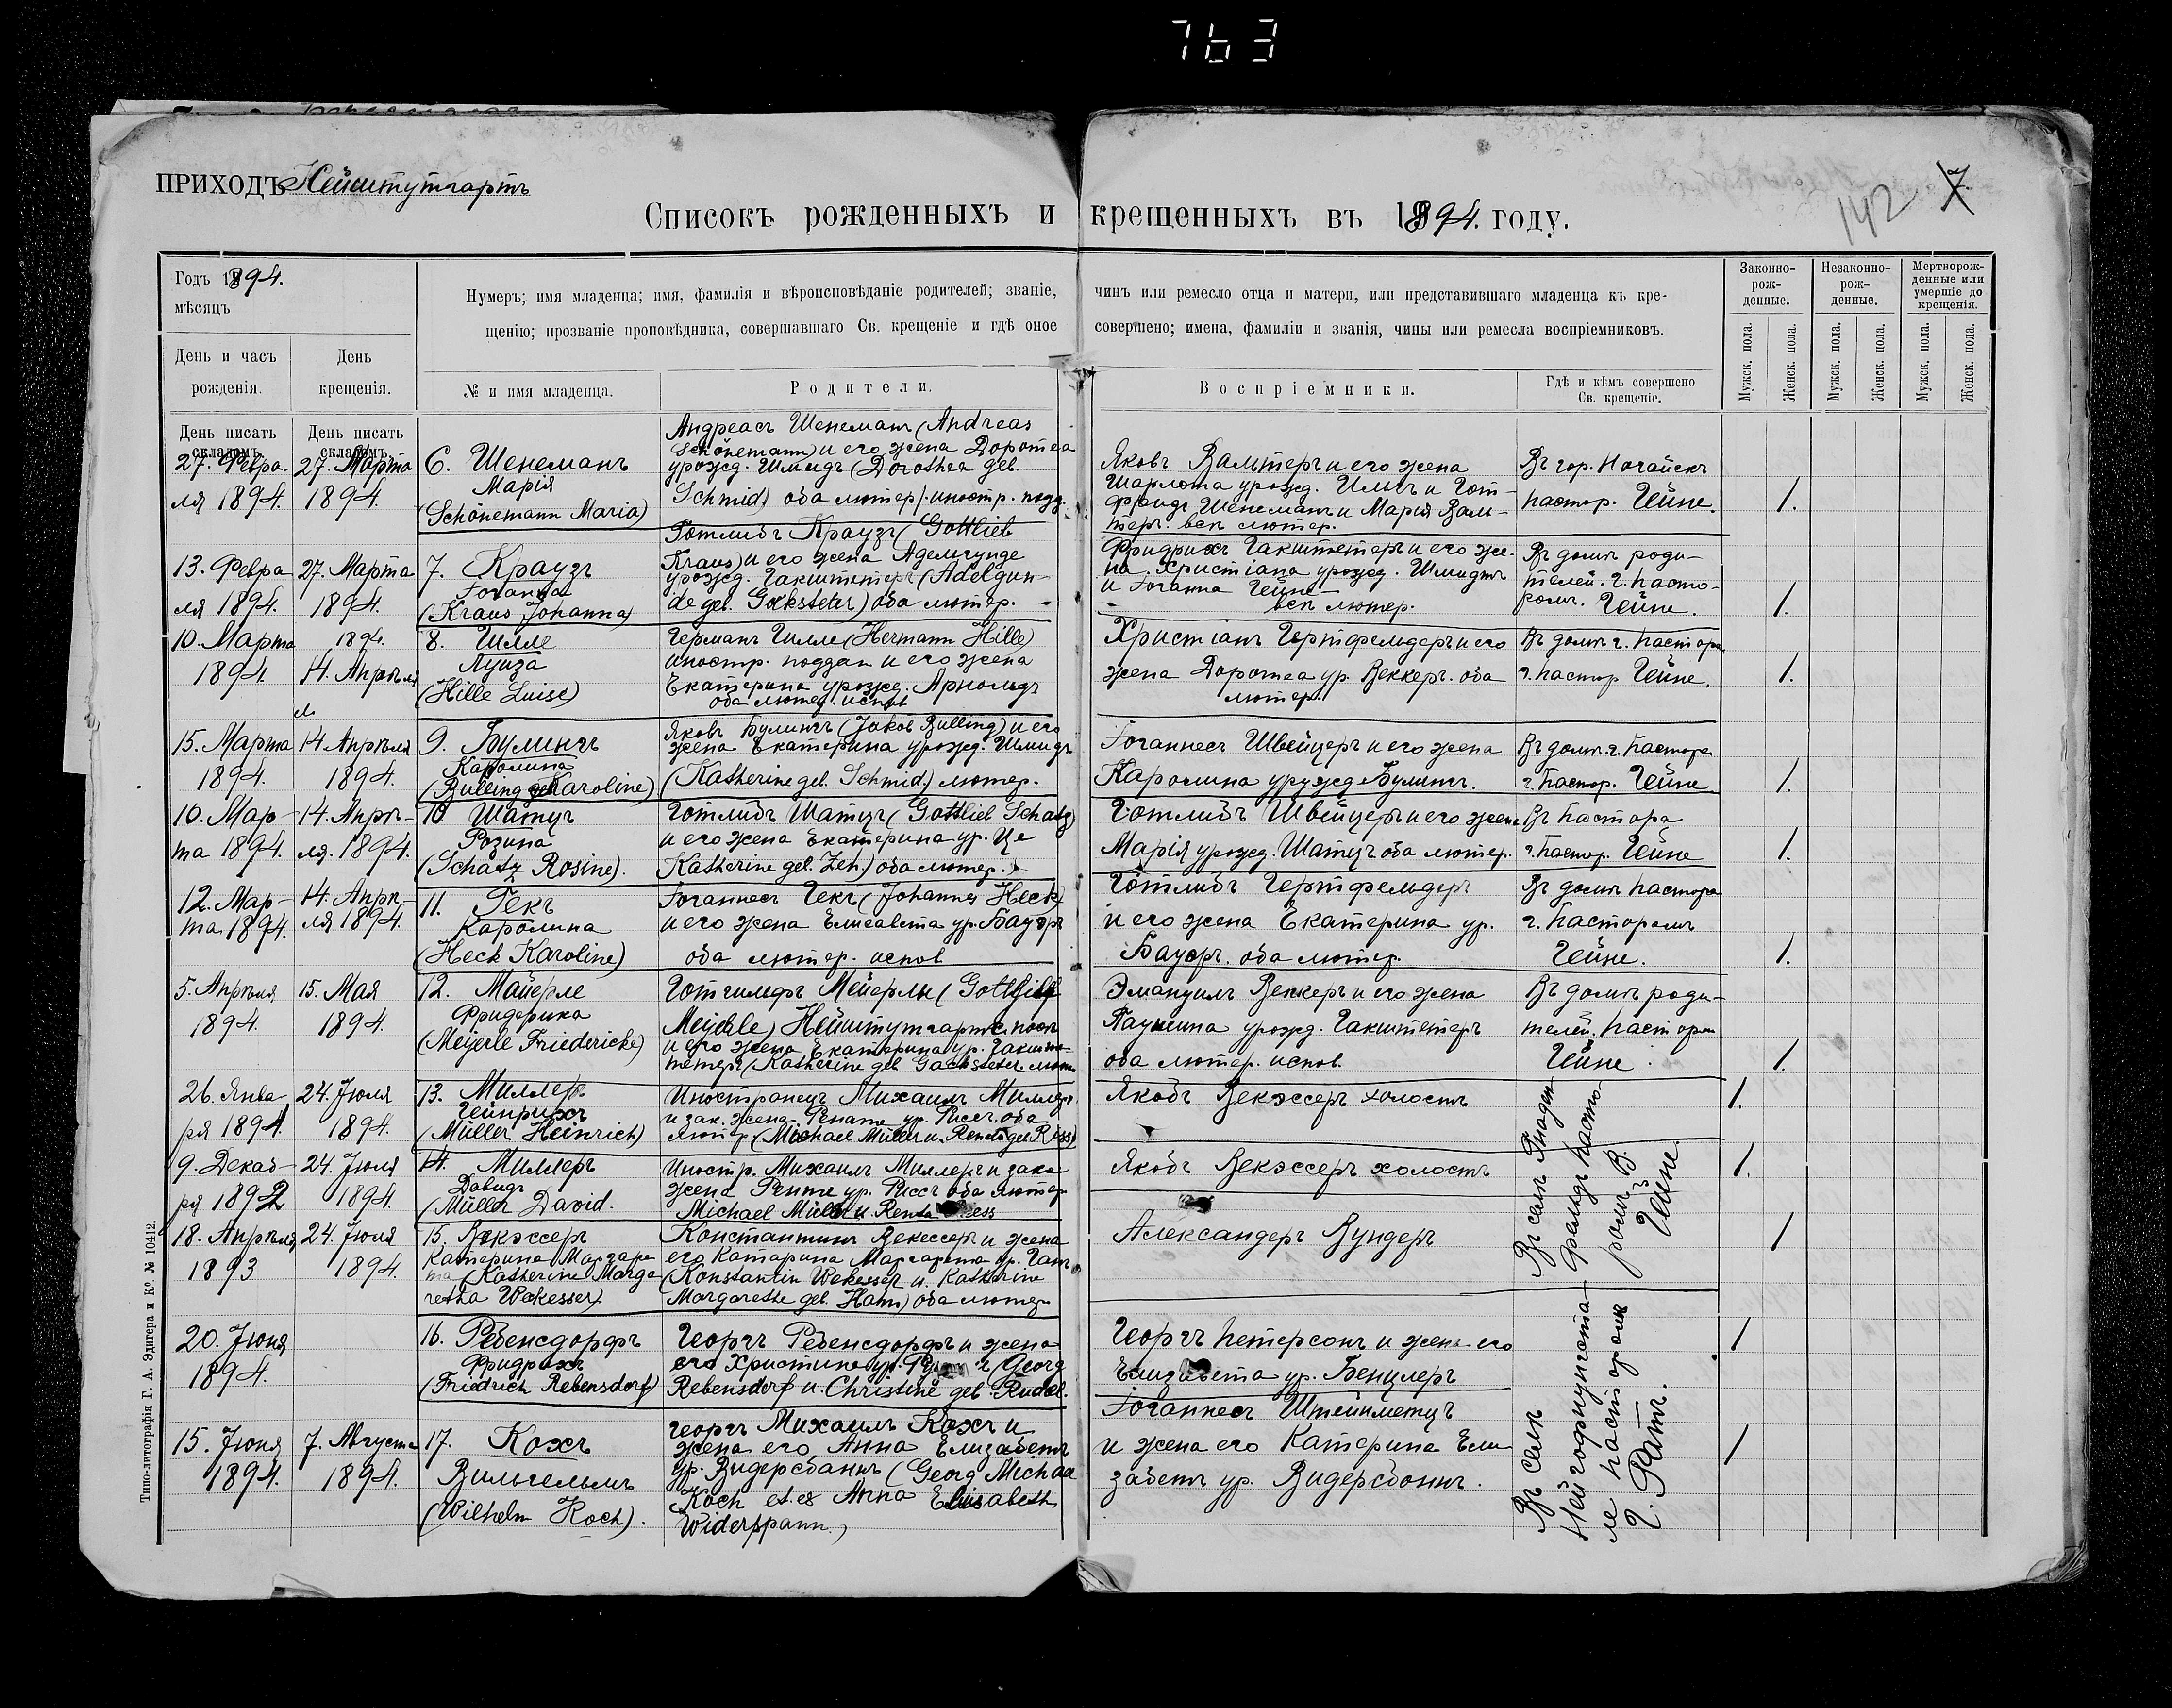 763
ПРИХОДЪ Нейштутгартъ
142 7.
Списокъ рожденныхъ и крещенныхъ въ 1894. году.
Годъ 1894.
мѣсяцъ
Нумеръ; имя младенца; имя, фамилія и вѣроисповѣданіе родителей; званіе, чинъ или ремесло отца и матери, или представившаго младенца къ кре-
щенію; прозваніе проповѣдника, совершавшаго Св. крещеніе и гдѣ оное совершено; имена, фамиліи и званія, чины или ремесла воспріемниковъ.
Законно-
рож-
денные.
Незаконно-
рож-
денные.
Мертворож-
денные или
умершіе до
крещенія.
День и часъ
рожденія.
День
крещенія.
№ и имя младенца.
Родители.
Воспріемники.
Гдѣ и кѣмъ совершено
Св. крещеніе.
Мужск. пола.
Женск. пола.
Мужск. пола.
Женск. пола.
Мужск. пола.
Женск. пола.
День писать
складомъ.
День писать
складомъ.
27. Февра-
ля 1894.
27. Марта
1894.
6. Шенеманъ
Марія
(Schönemann Maria)
Андреасъ Шенеманъ (Andreas
Schönemann) и его жена Доротеа
урожд. Шмидъ (Dorothea geb.
Schmid) оба лютер. иностр. подд.
Яковъ Вальтеръ и его жена
Шарлота урожд. и Гот-
фридъ Шенеманъ и Марія Валь-
теръ. всѣ лютер.
Въ гор. Ногайскъ
пастор. Гейне.
1.
13. Февра
ля 1894.
27. Марта
1894.
7. Краузъ
Іоганна
(Kraus Johanna)
Готлибъ Краузъ (Gottlieb
Kraus) и его жена Адельгунде
урожд. Гакштетеръ (Adelgun-
de geb. Goksteter) оба лютер.
Фридрихъ Гакштетеръ и его же-
на Христіана урожд. Шмидтъ
и Іоганна Гейне
всѣ лютер.
Въ домѣ роди-
телей. г. пасто-
ромъ. Гейне.
1.
10. Марта
1894.
1894.
14. Апрѣля
8. Гилле
Луиза
(Hille Luise)
Германъ Гилле (Hermann Hille)
иностр. поддан и его жена
Екатерина урожд. Арнольдъ
оба лютер. испов
Христіанъ Гертфельдеръ и его
жена Доротеа ур. Веккеръ. оба
лютер.
Въ домѣ г. пастора
г. пастор Гейне.
1.
15. Марта
1894.
14 Апрѣля
1894.
9. Булингъ
Каролина
(Bulling Karoline)
Яковъ Булингъ (Jakob Bulling) и его
жена Екатерина урожд. Шмидъ
(Katherine geb. Schmid.) лютер.
Іоганнесъ Швейцеръ и его жена
Каролина урожд Булингъ.
Въ домѣ. г. пастора
г. пастор. Гейне
1.
10. Мар-
та 1894.
14. Апрѣ-
ля. 1894.
10 Шатцъ
Розина
(Schatz Rosine).
Готлибъ Шатцъ (Gottlieb Schatz)
и его жена Екатерина ур. Це
Katherine geb. Zeh.) оба лютер.
Готлибъ Швейцеръ и его жена
Марія урожд. Шатцъ оба лютер.
Въ пастора
г. пастор. Гейне
1.
12. Мар-
та 1894.
14. Апрѣ-
ля 1894.
11. Гекъ
Каролина
(Heck Karoline)
Іоганнесъ Гекъ (Johannes Heck
и его жена Елисавета ур. Бауэръ
оба лютер. испов
Готлибъ Гертфельдеръ
и его жена Екатерина ур.
Бауэръ. оба лютер.
Въ домѣ пастора
г. пасторомъ
Гейне.
1.
5. Апрѣля
1894.
15. Мая
1894.
12. Майерле
Фридерика
(Meyerle Friedericke)
Готгильфъ Мейерлы (Gotthilf
Meyerle) Нейштутгартс. пос.
и его жена Екатерина ур. Гакште-
тетеръ (Katherine geb Gacksteter. лютер
Эмануилъ Веккеръ и его жена
Паулина урожд. Гакштетеръ
оба лютер. испов.
Въ домѣ роди-
телей. пастором
Гейне.
1.
26. Янва
ря 1894.
24. Іюля
1894.
13. Миллеръ
Гейнрихъ
(Müller Heinrich)
Иностранецъ Михаилъ Миллеръ
и зак. жена Рената ур. Риссъ. оба
лютр. (Michael Müller u. Renata geb Riss)
Якобъ Векэссеръ холостъ
1.
9. Декаб-
ря 1892
24. Іюля
1894.
14. Миллеръ
Давидъ
(Müller David.
Иностр. Михаилъ Миллеръ и зак.
жена Ренте ур. Риссъ оба лютер
Michael Müller u. Renta Riess
Якобъ Векэссеръ холостъ
1.
18. Апрѣля
1893
24. Іюля
1894.
15. Векэссеръ
Катерина Маргаре
та (Katherine Marga
retha Wekesser)
Константинъ Векессеръ и жена
его Катарина Маргарета ур. Ганъ
(Konstantin Wekesser u. Katherine
Margarethe geb. Hahn) оба лютер
Александеръ Вундеръ
1
Въ селѣ Гнаден-
фельдъ пасто-
ромъ В.
Гейне.
20. Іюня
1894.
16. Ребенсдорфъ
Фридрихъ
(Friedrich Rebensdorf)
Георгъ Ребенсдорфъ и жена
его Христине ур. (Georg
Rebensdorf u. Christine geb. Rudel.
Георгъ Петерсонъ и жена его
Елизабета ур. Бенцлеръ
1
15. Іюня
1894.
7. Августа
1894.
17. Кохъ
Вильгельмъ
(Wilhelm Koch).
Георгъ Михаилъ Кохъ и
жена его Анна Елизабетъ
ур. Видерсбанъ (Georg Michael
Koch et.es Anna Elisabeth
Widerspann.)
Іоганнесъ Штейнметцъ
и жена его Катерина Ели
забетъ ур. Видерсбонъ.
1
Въ селѣ
Нейгофнунгста-
ле пасторомъ
Г. Ратъ.
Типо-литографія Г. А. Эдигера и Ко. № 10412.